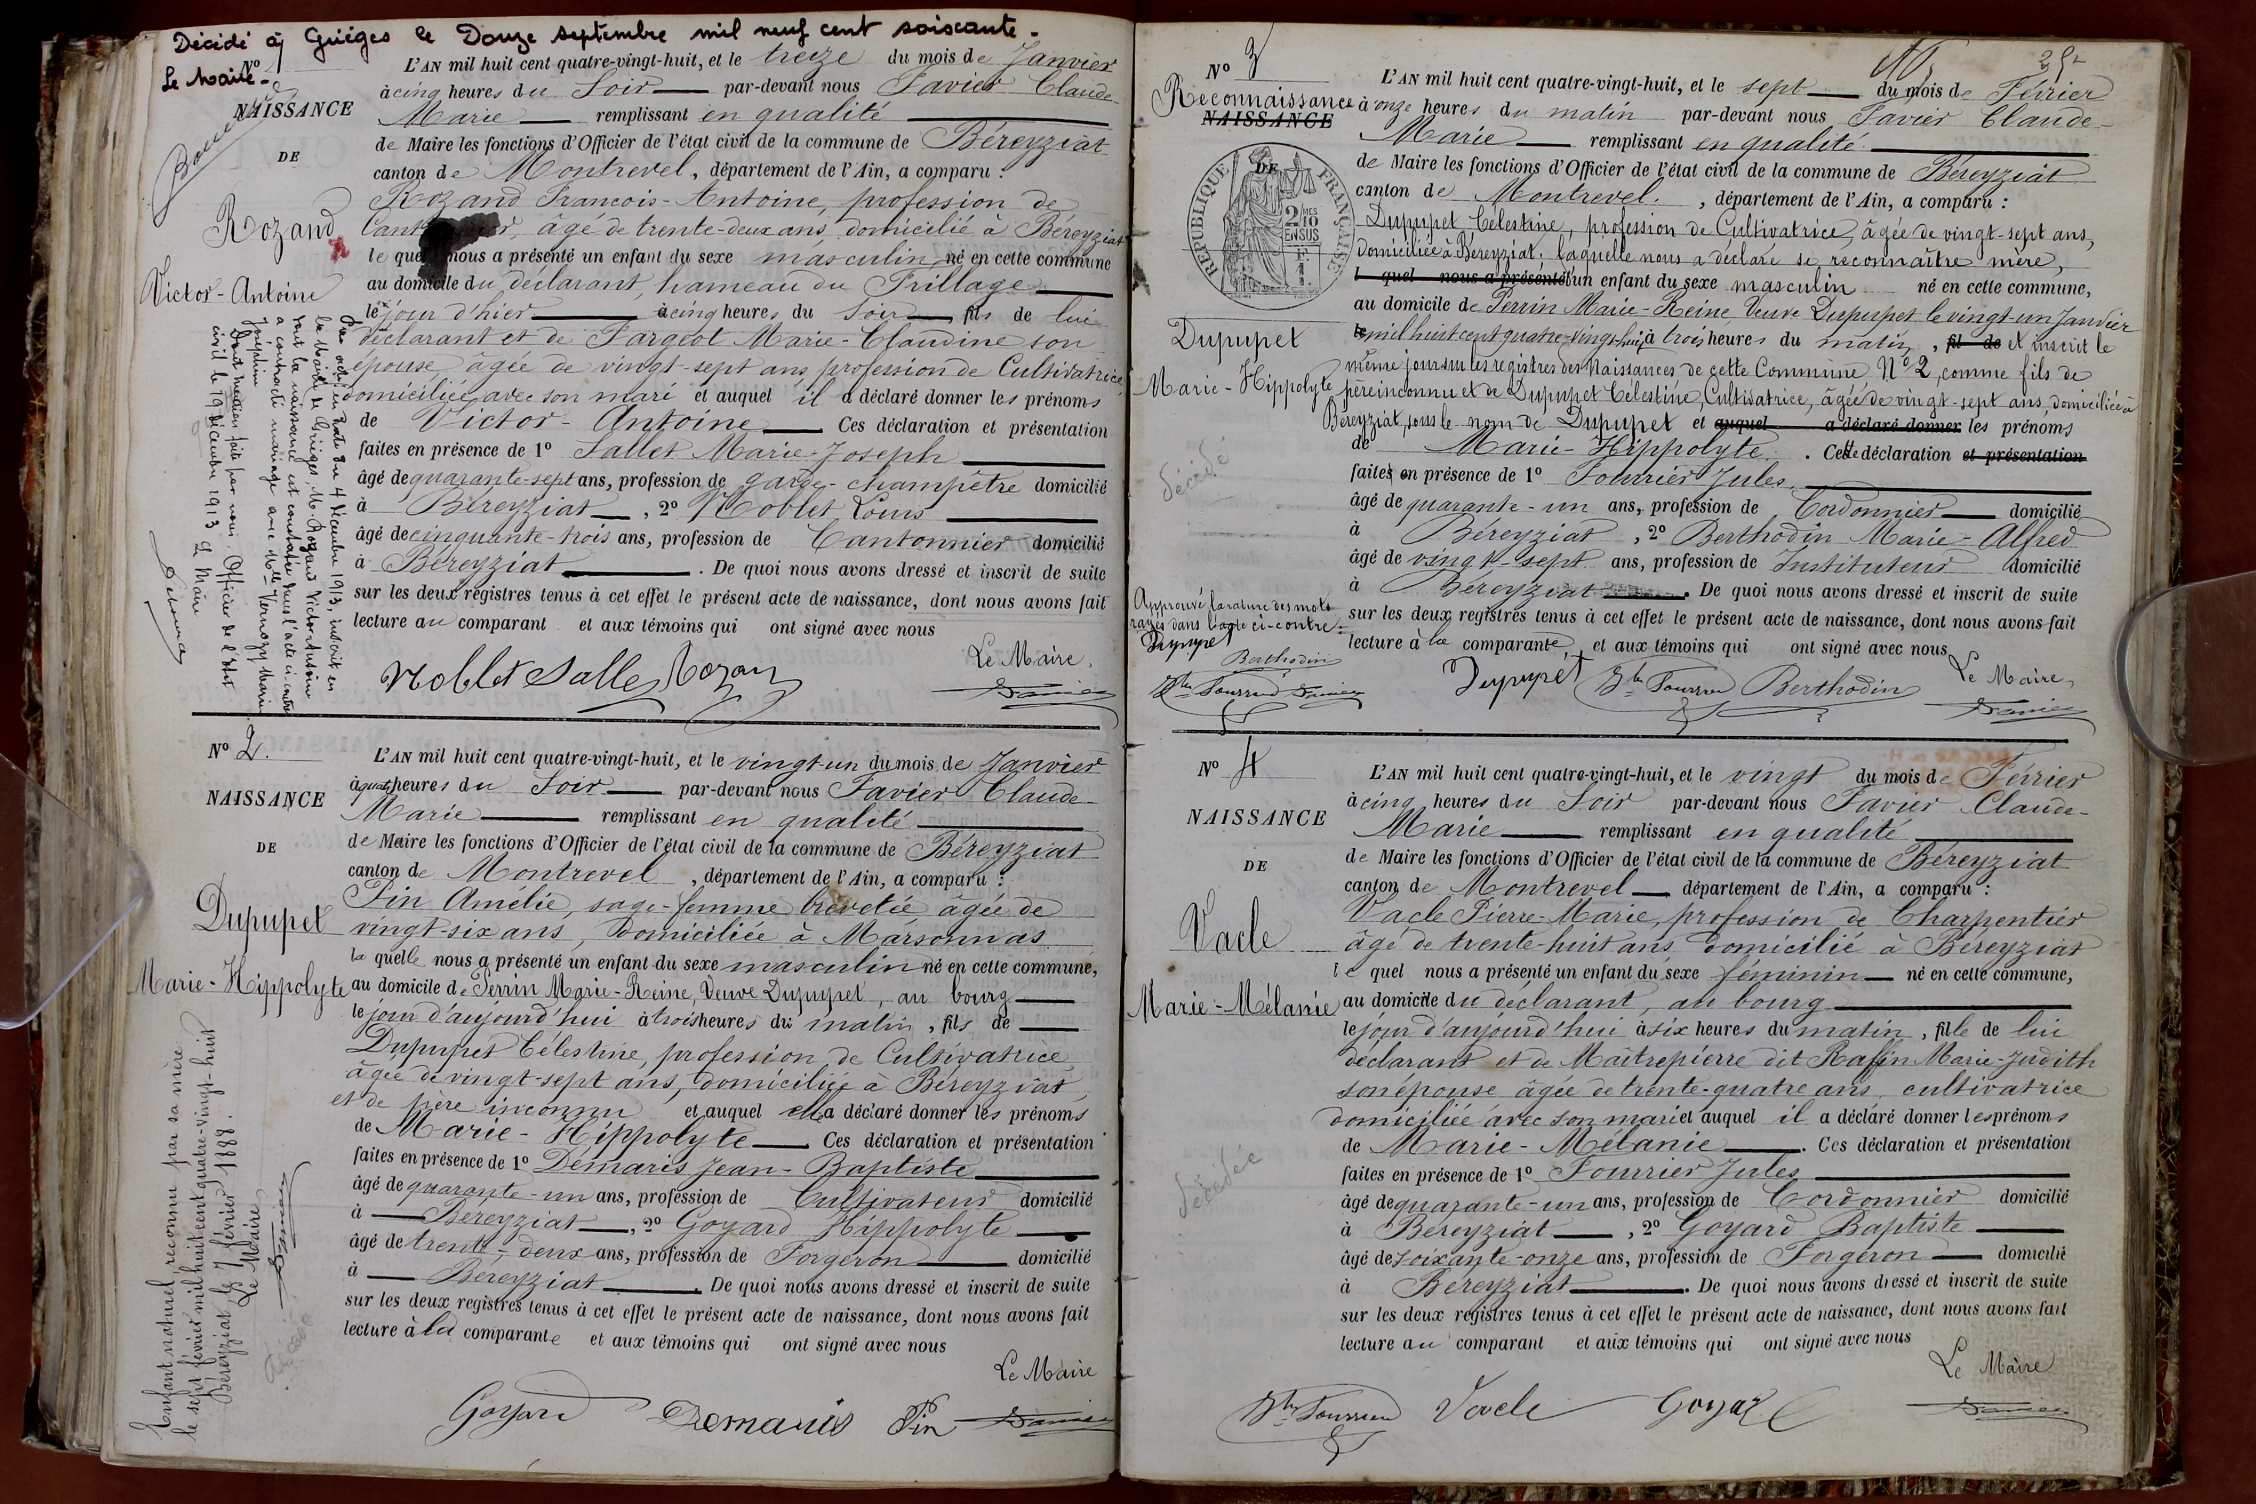 Décidé à Griéges le Douze septembre mil neuf cent soiscante.
Le Maire.
Nº 1
NAISSANCE
DE
Rozand
Victor-Antoine
L'AN mil huit cent quatre-vingt-huit, et le treize du mois de Janvier
à cinq heures du Soir par-devant nous Favier Claude-
Marie remplissant en qualité
de Maire les fonctions d'Officier de l'état civil de la commune de Béreyziat
canton de Montrevel, département de l'Ain, a comparu :
Rozand François-Antoine, profession de
âgé de trente-deux ans, domicilié à Béreyziat
le quel nous a présenté un enfant du sexe masculin, né en cette commune
au domicile du déclarant, hameau du Frillage
le jour d'hier à cinq heures du Soir fils de lui
déclarant et de Fargeot Marie-Claudine son
épouse, âgée de vingt-sept ans profession de Cultivatrice
domiciliée avec son mari et auquel il a déclaré donner les prénoms
de Victor-Antoine Ces déclaration et présentation
faites en présence de 1º Sallet Marie-Joseph
âgé de quarante-sept ans, profession de garde-champêtre domicilié
à Béreyziat, 2º Noblet Louis
âgé de cinquante-trois ans, profession de Cantonnier domicilié
à Béreyziat. De quoi nous avons dressé et inscrit de suite
sur les deux registres tenus à cet effet le présent acte de naissance, dont nous avons fait
lecture au comparant et aux témoins qui ont signé avec nous
Le Maire,
Noblet Sallet Rozan Favier
Par acte en date du 4 décembre 1913, inscrit en
la Mairie de Griéges, M. Rozand Victor-Antoine
dont la naissance est constatée dans l'acte ci-contre
a contracté mariage avec Melle Vernozy Marie
Joséphine
Dont mention faite par nous, Officier de l'état
civil le 19 décembre 1913 Le Maire
Nº 2.
NAISSANCE
DE
Dupupet
Marie-Hippolyte
L'AN mil huit cent quatre-vingt-huit, et le vingt-un du mois de Janvier
à quatre heures du Soir par-devant nous Favier Claude-
Marie remplissant en qualité
de Maire les fonctions d'Officier de l'état civil de la commune de Béreyziat
canton de Montrevel, département de l'Ain, a comparu :
Fin Amélie, sage-femme brevetée âgée de
vingt-six ans, domiciliée à Marsonnas
la quelle nous a présenté un enfant du sexe masculin né en cette commune,
au domicile de Perrin Marie-Reine, Veuve Dupupet, au bourg
le jour d'aujourd'hui à trois heures du matin, fils de
Dupupet Célestine, profession de Cultivatrice
âgée de vingt-sept ans, domiciliée à Béreyziat,
et de père inconnu et auquel elle a déclaré donner les prénoms
de Marie-Hippolyte. Ces déclaration et présentation
faites en présence de 1º Démaris Jean-Baptiste
âgé de quarante-un ans, profession de Cultivateur domicilié
à Béreyziat, 2º Goyard Hippolyte
âgé de trente-deux ans, profession de Forgeron domicilié
à Béreyziat. De quoi nous avons dressé et inscrit de suite
sur les deux registres tenus à cet effet le présent acte de naissance, dont nous avons fait
lecture à la comparante et aux témoins qui ont signé avec nous
Le Maire
Goyard Demaris Fin Favier
Enfant naturel, reconnu par sa mère
le sept février mil huit cent quatre-vingt-huit
Béreyziat, le 7 février 1888.
Le Maire
Favier
Décédé
Nº 3
Reconnaissance
NAISSANCE
DE
RÉPUBLIQUE FRANÇAISE
2/10MES
EN SUS
Dupupet
Marie-Hippolyte
décédé
L'AN mil huit cent quatre-vingt-huit, et le sept du mois de Février
à onze heures du matin par-devant nous Favier Claude-
Marie remplissant en qualité
de Maire les fonctions d'Officier de l'état civil de la commune de Béreyziat
canton de Montrevel, département de l'Ain, a comparu :
Dupupet Célestine, profession de Cultivatrice, âgée de vingt-sept ans,
domiciliée à Béreyziat, laquelle nous a déclaré se reconnaître mère,
l quel nous a présenté d'un enfant du sexe masculin né en cette commune,
au domicile de Perrin Marie-Reine, Veuve Dupupet le vingt-un Janvier
le mil huit cent quatre-vingt-huit, à trois heures du matin, fil de et inscrit le
même jour sur les registres des Naissances de cette Commune Nº 2, comme fils de
père inconnu et de Dupupet Célestine, Cultivatrice, âgée de vingt-sept ans, domiciliée à
Béreyziat, sous le nom de Dupupet et auquel a déclaré donner les prénoms
de Marie-Hippolyte. Cette déclaration et présentation
faites en présence de 1º Fourrier Jules
âgé de quarante-un ans, profession de Cordonnier domicilié
à Béreyziat, 2º Berthodin Marie-Alfred
âgé de vingt-sept ans, profession de Instituteur domicilié
à Béreyziat. De quoi nous avons dressé et inscrit de suite
sur les deux registres tenus à cet effet le présent acte de naissance, dont nous avons fait
lecture à la comparante et aux témoins qui ont signé avec nous
Le Maire,
Dupupet Fourrier Berthodin Favier
Approuvé la rature des mots
rayés dans l'acte ci-contre
Dupupet
Berthodin
Fourrier Favier
Nº 4
NAISSANCE
DE
Vacle
Marie-Mélanie
décédée
L'AN mil huit cent quatre-vingt-huit, et le vingt du mois de Février
à cinq heures du Soir par-devant nous Favier Claude-
Marie remplissant en qualité
de Maire les fonctions d'Officier de l'état civil de la commune de Béreyziat
canton de Montrevel département de l'Ain, a comparu :
Vacle Pierre-Marie, profession de Charpentier
âgé de trente-huit ans, domicilié à Béreyziat
le quel nous a présenté un enfant du sexe féminin né en cette commune,
au domicile du déclarant, au bourg
le jour d'aujourd'hui à six heures du matin, fille de lui
déclarant et de Maîtrepierre dit Raffin Marie-Judith
son épouse âgée de trente-quatre ans, cultivatrice
domiciliée avec son mari et auquel il a déclaré donner les prénoms
de Marie-Mélanie. Ces déclaration et présentation
faites en présence de 1º Fourrier Jules
âgé de quarante-un ans, profession de Cordonnier domicilié
à Béreyziat, 2º Goyard Baptiste
âgé de soixante-onze ans, profession de Forgeron domicilié
à Béreyziat. De quoi nous avons dressé et inscrit de suite
sur les deux registres tenus à cet effet le présent acte de naissance, dont nous avons fait
lecture au comparant et aux témoins qui ont signé avec nous
Le Maire
Fourrier Vacle Goyar Favier